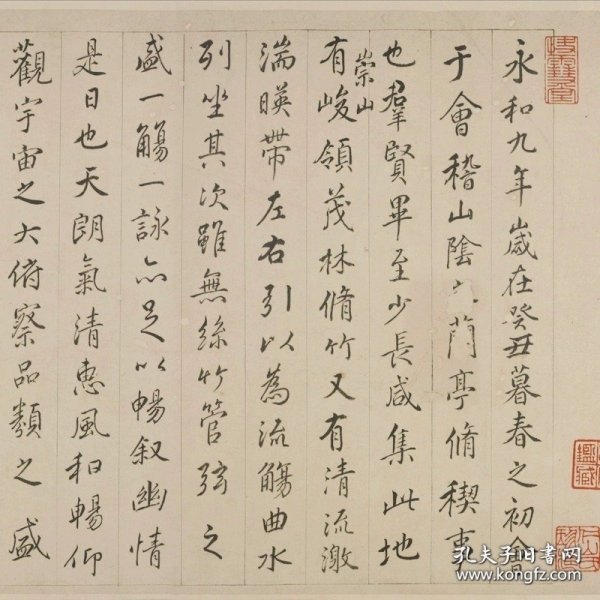 永和九年歲在癸丑暮春之初會
于會稽山陰之蘭亭脩稧事
也羣賢畢至少長咸集此地
有崇山峻領茂林脩竹又有清流激
湍暎帶左右引以為流觴曲水
列坐其次雖無絲竹管弦之
盛一觴一詠亦足以暢叙幽情
是日也天朗氣清惠風和暢仰
觀宇宙之大俯察品類之盛
鑑藏
孔夫子旧书网
www.kongfz.com